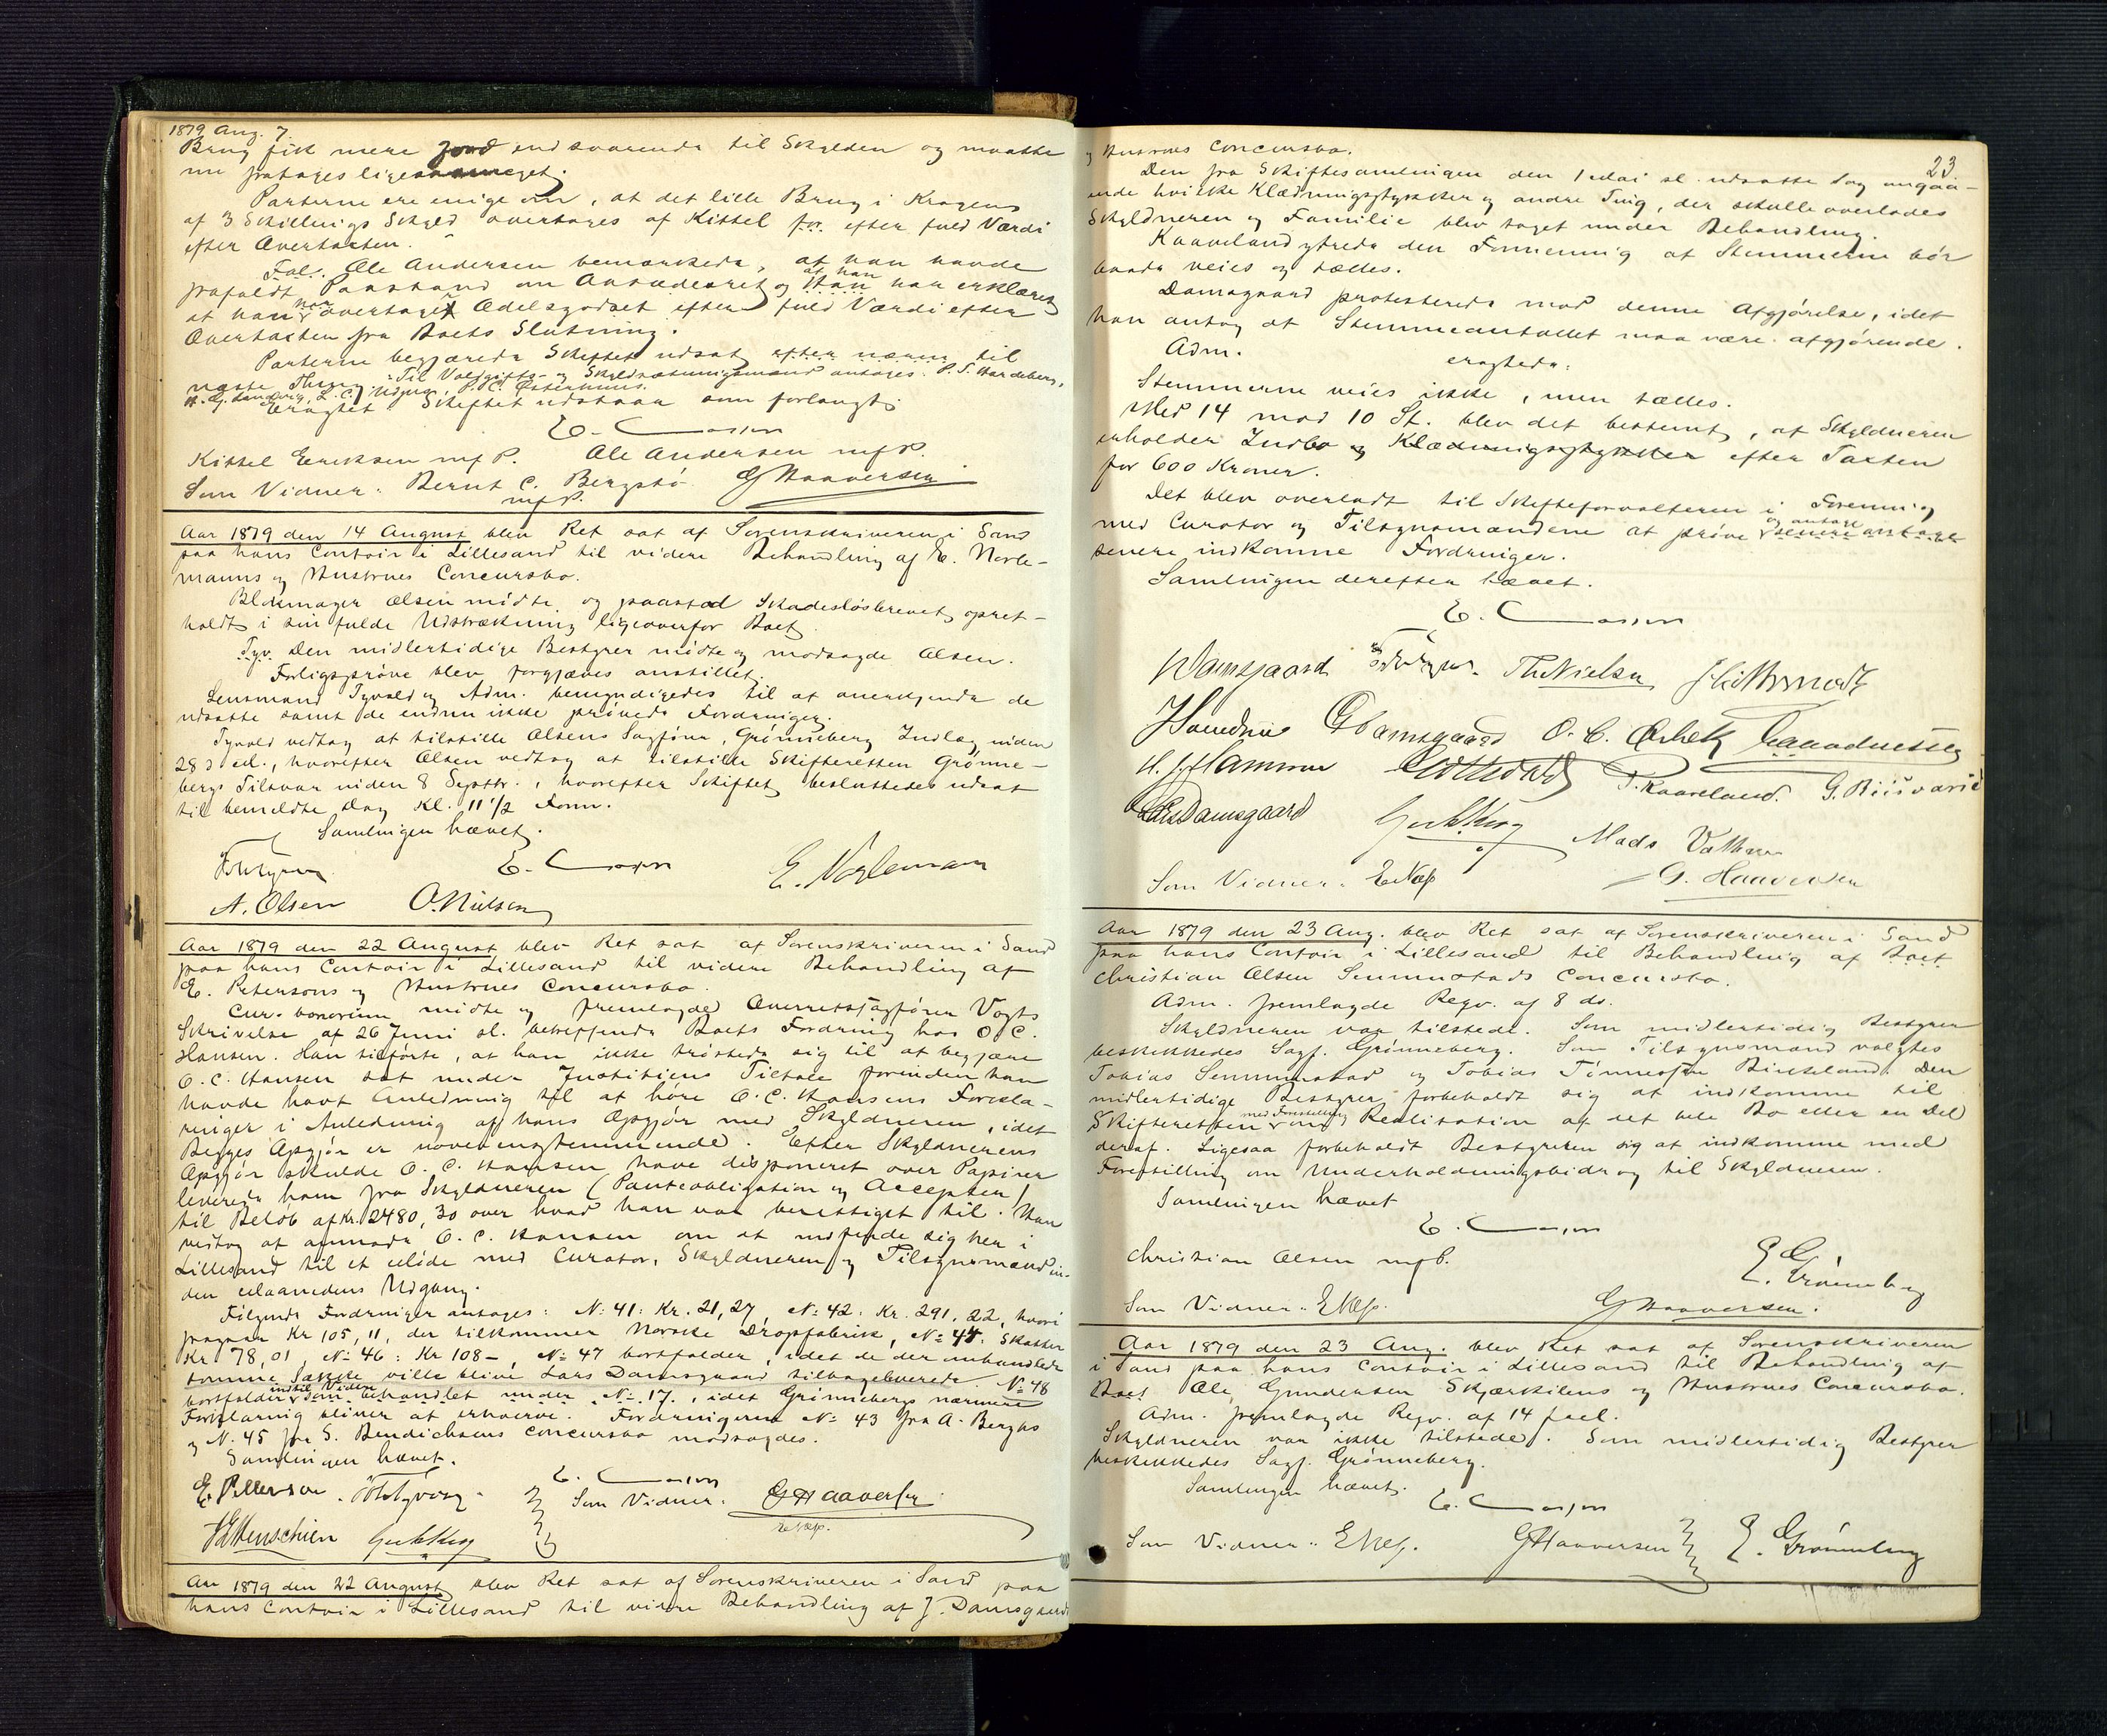 1879 Aug. 7.
Brug fik mere Jord end svarende til Skylden og maatte
nu fratages ligesaameget.
Parterne ere enige om, at det lille Brug i Kragens
af 3 Skillings Skyld overtages af Kittel for efter fuld Værdi
efter Overtaxten.
Ole Andersen bemærkede, at han havde
frafaldt Paastand om Aasædesret og at han har erklæret
at han har overtaget Odelsgodset efter fuld Værdi efter
Overtaxten fra Boets Slutning.
Parterne begjærede Skiftet udsat efter nærm til
næste Thing. Til Voldgifts- og Skyldsætningsmænd antages: P. S. Hardeberg,
Eragtet: Skiftet udstaar som forlangt.
E. C
Kittel Eeriksen mfP. Ole Andersen mfP.
Som Vidner: Bernt C. Bergstø GHaaversen
mfP.
Aar 1879 den 14 August blev Ret sat af Sorenskriveren i Sand
paa hans Contoir i Lillesand til videre Behandling af E. Norle-
manns og Hustrues Concursbo.
Blokmager Olsen mødte og paastod Skadesløsbrevet opret-
holdt i sin fulde Udstrækning ligeoverfor Boet.
Den midlertidige Bestyrer mødte og modsagde Olsen.
Forligsprøve blev forgjæves anstillet.
Lensmand Tyvold og Adm. bemyndigedes til at anerkjende de
udsatte samt de endnu ikke prøvede Fordringer.
Tyvold vedtog at tilstille Olsens Sagfører, Grønneberg Indlæg inden
28 d. M., hvorefter Olsen vedtog at tilstille Skifteretten Grønne-
bergs Tilsvar inden 8 Septbr., hvorefter Skiftet besluttedes udsat
til bemeldte Dag Kl. 11 1/2 Form.
Samlingen hævet.
E. C E. Norleman
A. Olsen O. Nielsen
Aar 1879 den 22 August blev Ret sat af Sorenskriveren i Sand
paa hans Contoir i Lillesand til videre Behandling af
E. Petersons og Hustrues Concursbo.
Cur. bonorum mødte og fremlagde Overretssagfører Vogts
Skrivelse af 26 Juni sl. betreffende Boets Fordring hos O. C.
Hansen. Han tilførte, at han ikke trøstede sig til at begjære
O. C. Hansen sat under Justitiens Tiltale forinden han
havde havt Anledning til at høre O. C. Hansens Forkla-
ringer i Anledning af hans Opgjør med Skyldneren, idet
Begges Opgjør er uoverensstemmende. Efter Skyldnerens
Opgjør skulde O. C. Hansen have disponeret over Papirer
leverede ham fra Skyldneren (Panteobligation og Accepter)
til Beløb af Kr. 2480,30 over hvad han var berettiget til. Han
vedtog at anmode O. C. Hansen om at indfinde sig her i
Lillesand til et Møde med Curator, Skyldneren og Tilsynsmænd in-
den Maanedens Udgang.
Følgende Fordringer antages: No 41: Kr. 21,27, No 42: Kr. 291,22, hvori
fragaar Kr 105,11, der tilkommer Norske Dropsfabrik, No 44: Skatter
Kr 78,01, No 46: Kr 108 –, No 47 bortfalder, idet de der omhandlede
tomme Sække ville blive Lars Damsgaard tilbageleverede. No 48
bortfalder indtil Videre som behandlet under No 17, idet Grønnebergs nærmere
Forklaring bliver at erhverve. Fordringerne No 43 fra A. Berghs
og No 45 fra S. Bendichsens Concursbo modsagdes.
Samlingen hævet.
E. C
E. Petterson Som Vidner: GHaaversen
Aar 1879 den 22 August blev Ret sat af Sorenskriveren i Sand paa
hans Contoir i Lillesand til videre Behandling af J. Damsgaards
23.
og Hustrues Concursbo.
Den fra Skiftesamlingen den 1 Mai sl. udsatte Sag angaa-
ende hvilke Klædningsstykker og andre Ting, der skulle overlades
Skyldneren og Familie blev taget under Behandling.
Kaaveland ytrede den Formening at Stemmerne bør
baade veies og tælles.
Damsgaard protesterede mod denne Afgjørelse, idet
han antog at Stemmeantallet maa være afgjørende.
Adm.
eragtede:
Stemmerne veies ikke, men tælles.
Med 14 mod 10 St. blev det bestemt, at Skyldneren
erholder Indbo og Klædningsstykker efter Taxten
for 600 Kroner.
Det blev overladt til Skifteforvalteren i Forening
med Curator og Tilsynsmændene at prøve og antage
senere indkomne Fordringer.
Samlingen derefter hævet.
E. C
Damsgaard Th Nielsen
GDamsgaard O. C.
H. J. Hammer T. Kaaveland.
Lars Damsgaard Mads
Som Vidner: ENæss G. Haaversen
Aar 1879 den 23 Aug. blev Ret sat af Sorenskriveren i Sand
paa hans Contoir i Lillesand til Behandling af Boet
Christian Olsen Senumstads Concursbo.
Adm. fremlagde Reqv. af 8 ds.
Skyldneren var tilstede. Som midlertidig Bestyrer
beskikkedes Sagf. Grønneberg. Som Tilsynsmænd valgtes
Tobias Senumstad og Tobias Tønnesøn Birkeland. Den
midlertidige Bestyrer forbeholdt sig at indkomme til
Skifteretten med Forestilling om Realisation af det hele Bo eller en Del
deraf. Ligesaa forbeholdt Bestyreren sig at indkomme med
Forestilling om Underholdningsbidrag til Skyldneren.
Samlingen hævet
E. C
Christian Olsen mfP.
E. Grønneberg
Som Vidner: ENæss. GHaaversen.
Aar 1879 den 23 Aug. blev Ret sat af Sorenskriveren
i Sand paa hans Contoir i Lillesand til Behandling af
Boet Ole Gundersen Skjærkilens og Hustrues Concursbo.
Adm. fremlagde Reqv. af 14 ds.
Skyldneren var ikke tilstede. Som midlertidig Bestyrer
beskikkedes Sagf. Grønneberg.
Samlingen hævet.
E. C
Som Vidner: ENæss. GHaaversen E. Grønneberg